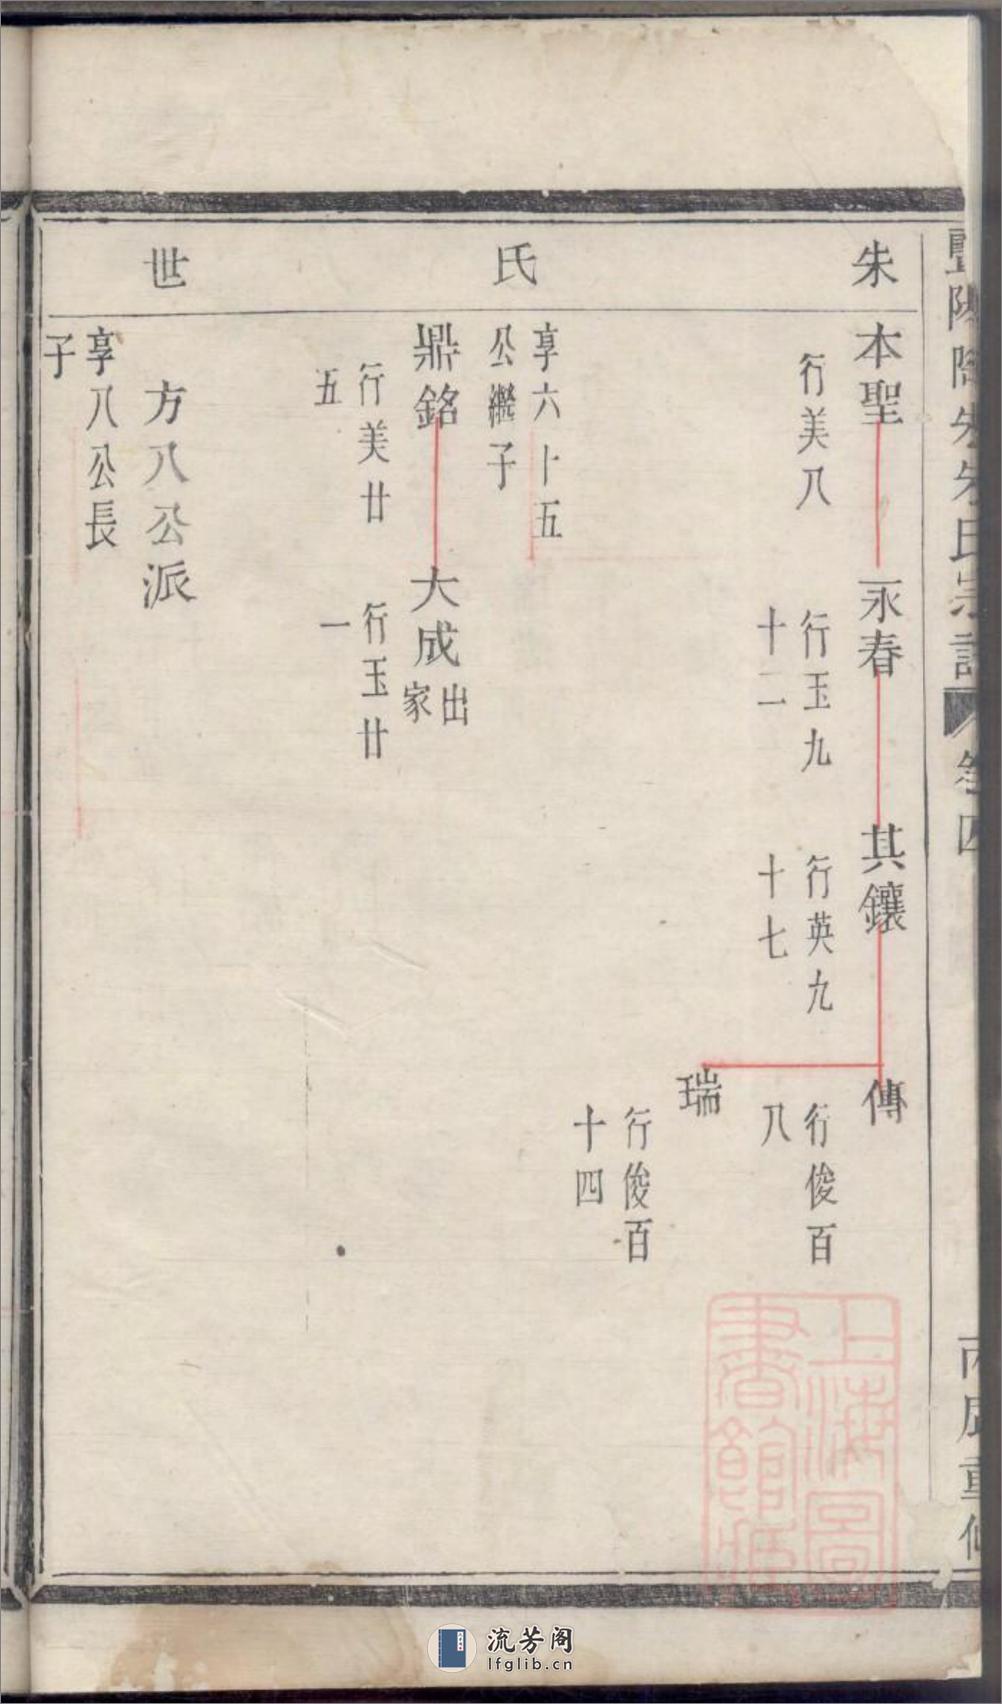 暨陽陶朱朱氏宗譜
卷四
丙辰重修
朱
氏
世
本聖
行美八
永春
行玉九
十二
其鑲
行英九
十七
傳
行俊百
八
瑞
行俊百
十四
享六十五
公繼子
鼎銘
行美廿
五
大成
出
家
行玉廿
一
方八公派
享八公長
子
上海圖
書館藏
流芳阁
lfglib.cn